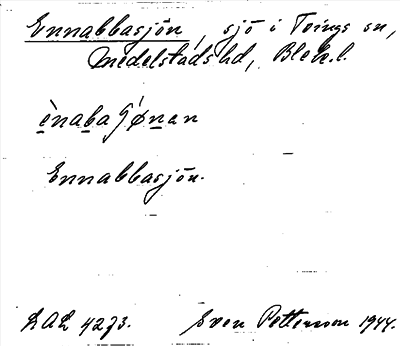 Ennabbasjön, sjö i Tvings sn,
Medelstads hd, Blek. l.
Ennabbasjön.
LAL 4273. Sven Pettersson 1944.